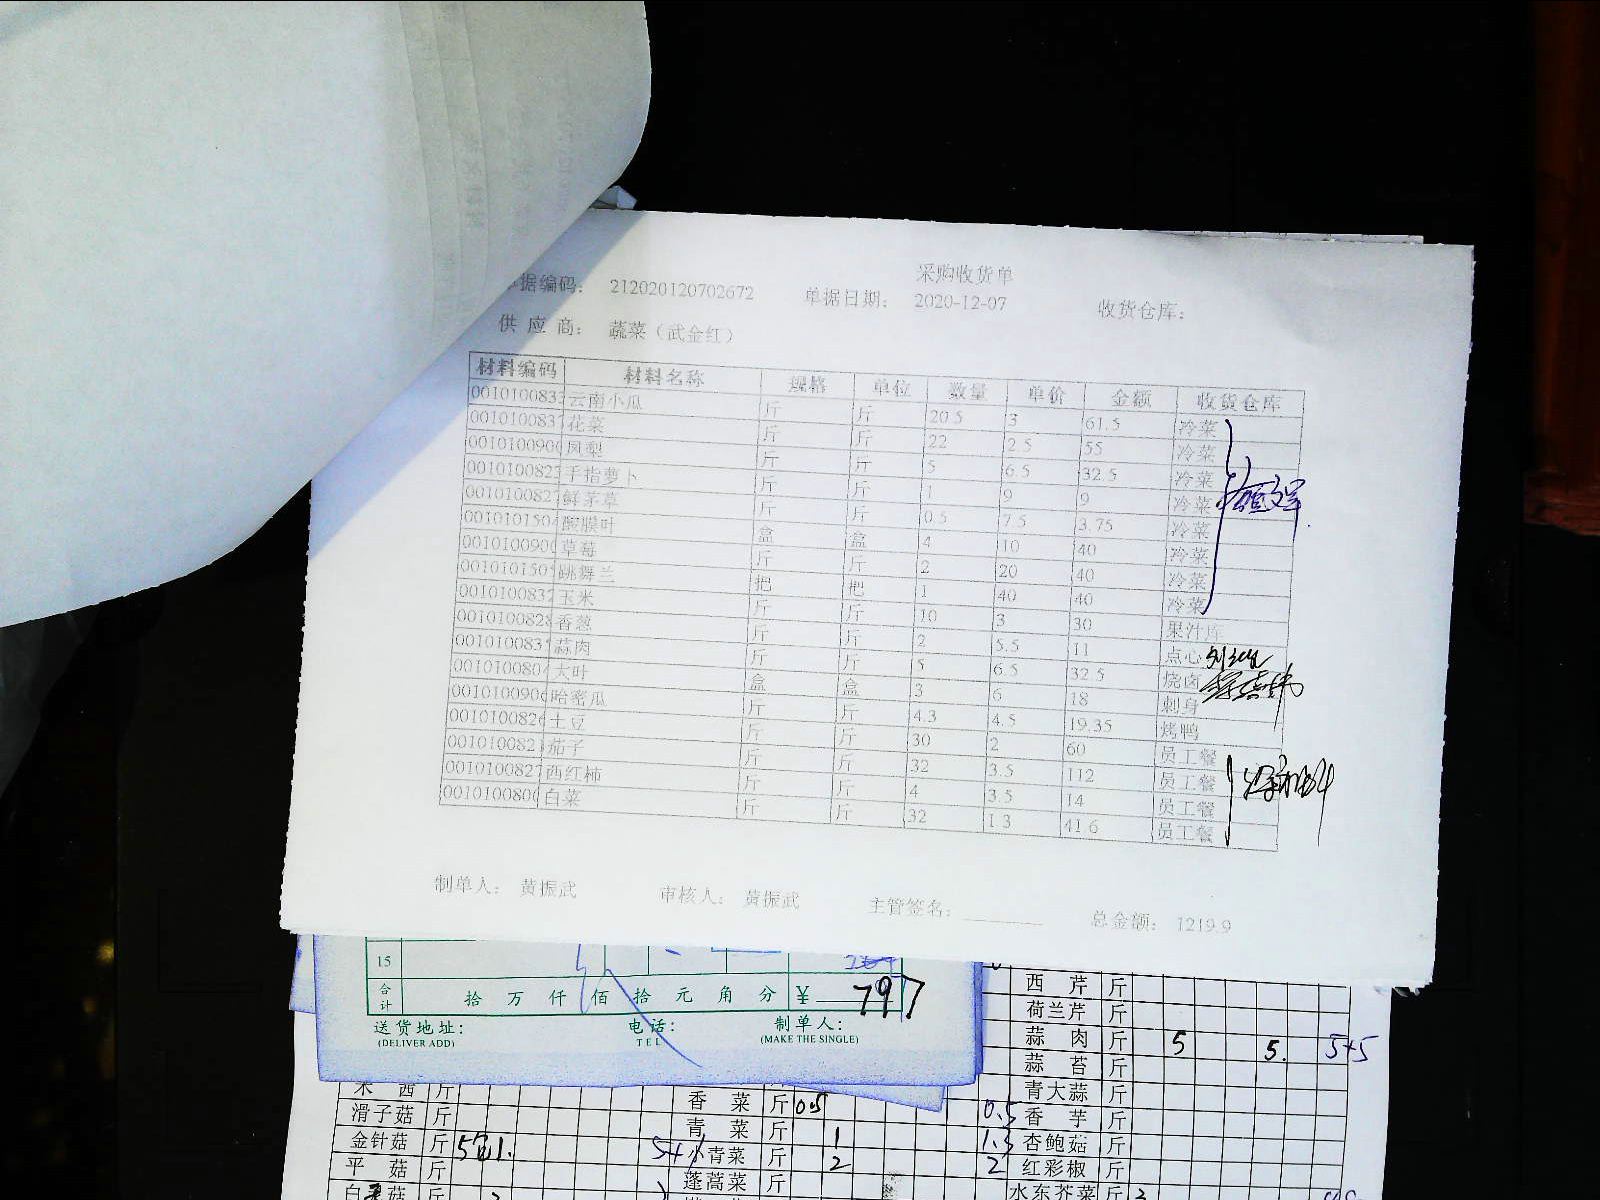 采购收货单
据编码： 212020120702672 单据日期： 2020-12-07 收货仓库：
供应商： 蔬菜（武金红）
材料编码 材料名称 规格 单位 数量 单价 金额 收货仓库
001010083 云南小瓜 斤 斤 20.5 3 61.5 冷菜
001010083 花菜 斤 斤 22 2.5 55 冷菜
001010090 凤梨 斤 斤 5 6.5 32.5 冷菜
001010082 手指萝卜 斤 斤 1 9 9 冷菜
001010082 鲜茅草 斤 斤 0.5 7.5 3.75 冷菜
001010150 酸膜叶 盒 盒 4 10 40 冷菜
001010090 草莓 斤 斤 2 20 40 冷菜
001010150 跳舞兰 把 把 1 40 40 冷菜
001010083 玉米 斤 斤 10 3 30 果汁库
001010082 香葱 斤 斤 2 5.5 11 点心
001010083 蒜肉 斤 斤 5 6.5 32.5 烧卤
001010080 大叶 盒 盒 3 6 18 刺身
001010090 哈密瓜 斤 斤 4.3 4.5 19.35 烤鸭
001010082 土豆 斤 斤 30 2 60 员工餐
001010082 茄子 斤 斤 32 3.5 112 员工餐
001010082 西红柿 斤 斤 4 3.5 14 员工餐
001010080 白菜 斤 斤 32 1.3 41.6 员工餐
制单人： 黄振武 审核人： 黄振武 主管签名： 总金额： 1219.9
15
合计 拾 万 仟 佰 拾 元 角 分 ¥ 797
送货地址： 电话： 制单人：
(DELIVER ADD) TEL (MAKE THE SINGLE)
西芹 斤
荷兰芹 斤
蒜肉 斤 5 5. 5+5
蒜苔 斤
青大蒜 斤
香菜 斤 0.5 0.5 香芋 斤
滑子菇 斤 青菜 斤 1 1.5 杏鲍菇 斤
金针菇 斤 小青菜 斤 2 2 红彩椒 斤
平菇 斤 蓬蒿菜 斤 水东芥菜 斤